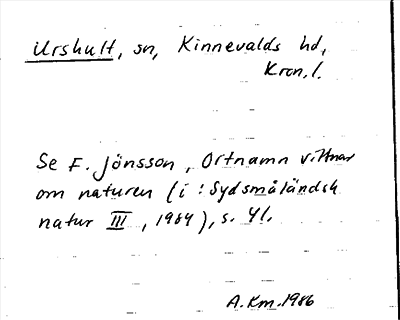 Urshult, sn, Kinnevalds hd,
Kron. l.
Se F. Jönsson, Ortnamn vittnar
om naturen (i: Sydsmåländsk
natur III, 1984), s. 41.
A.Km.1986